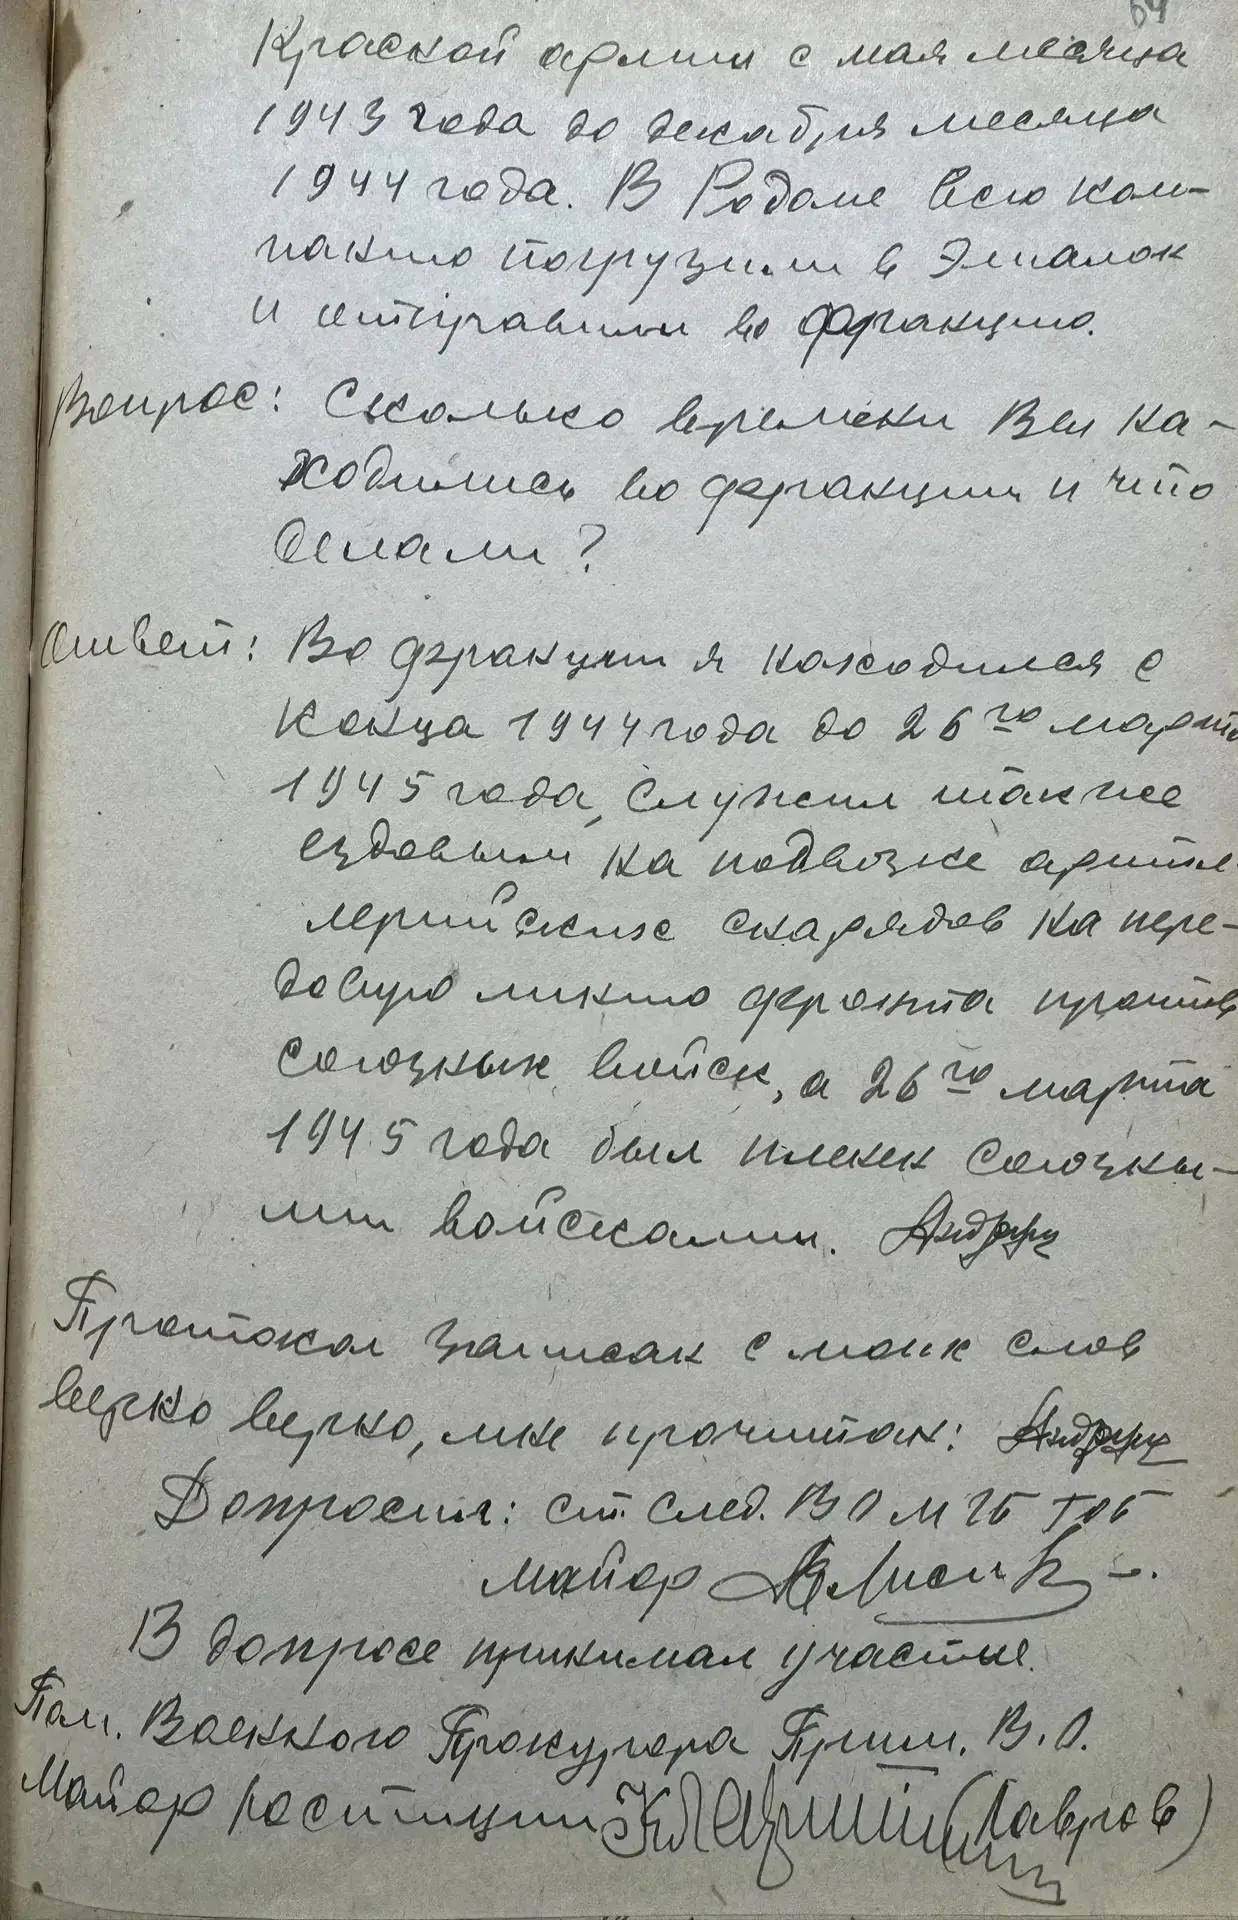 64
Красной армии с мая месяца
1943 года до декабря месяца
1944 года. В Родоме всю ком-
панию погрузили в Эшалок
и отправили во Францию.
Вопрос: Сколько времени Вы на-
ходились во Франции и что
делали?
Ответ: Во Франции я находился с
конца 1944 года до 26го марта
1945 года, служил также
ездовым на подвозке артил-
лерийских снарядов на пере-
довую линию фронта против
союзных войск, а 26го марта
1945 года был пленен союзны-
ми войсками.
Протокол записан с моих слов
верно верно, мне прочитан:
Допросил: ст. след. ВО МГБ
майор
В допросе принимал участие.
Пом. Военного Прокурора Прим. В.О.
Майор юстиции (Лавров)